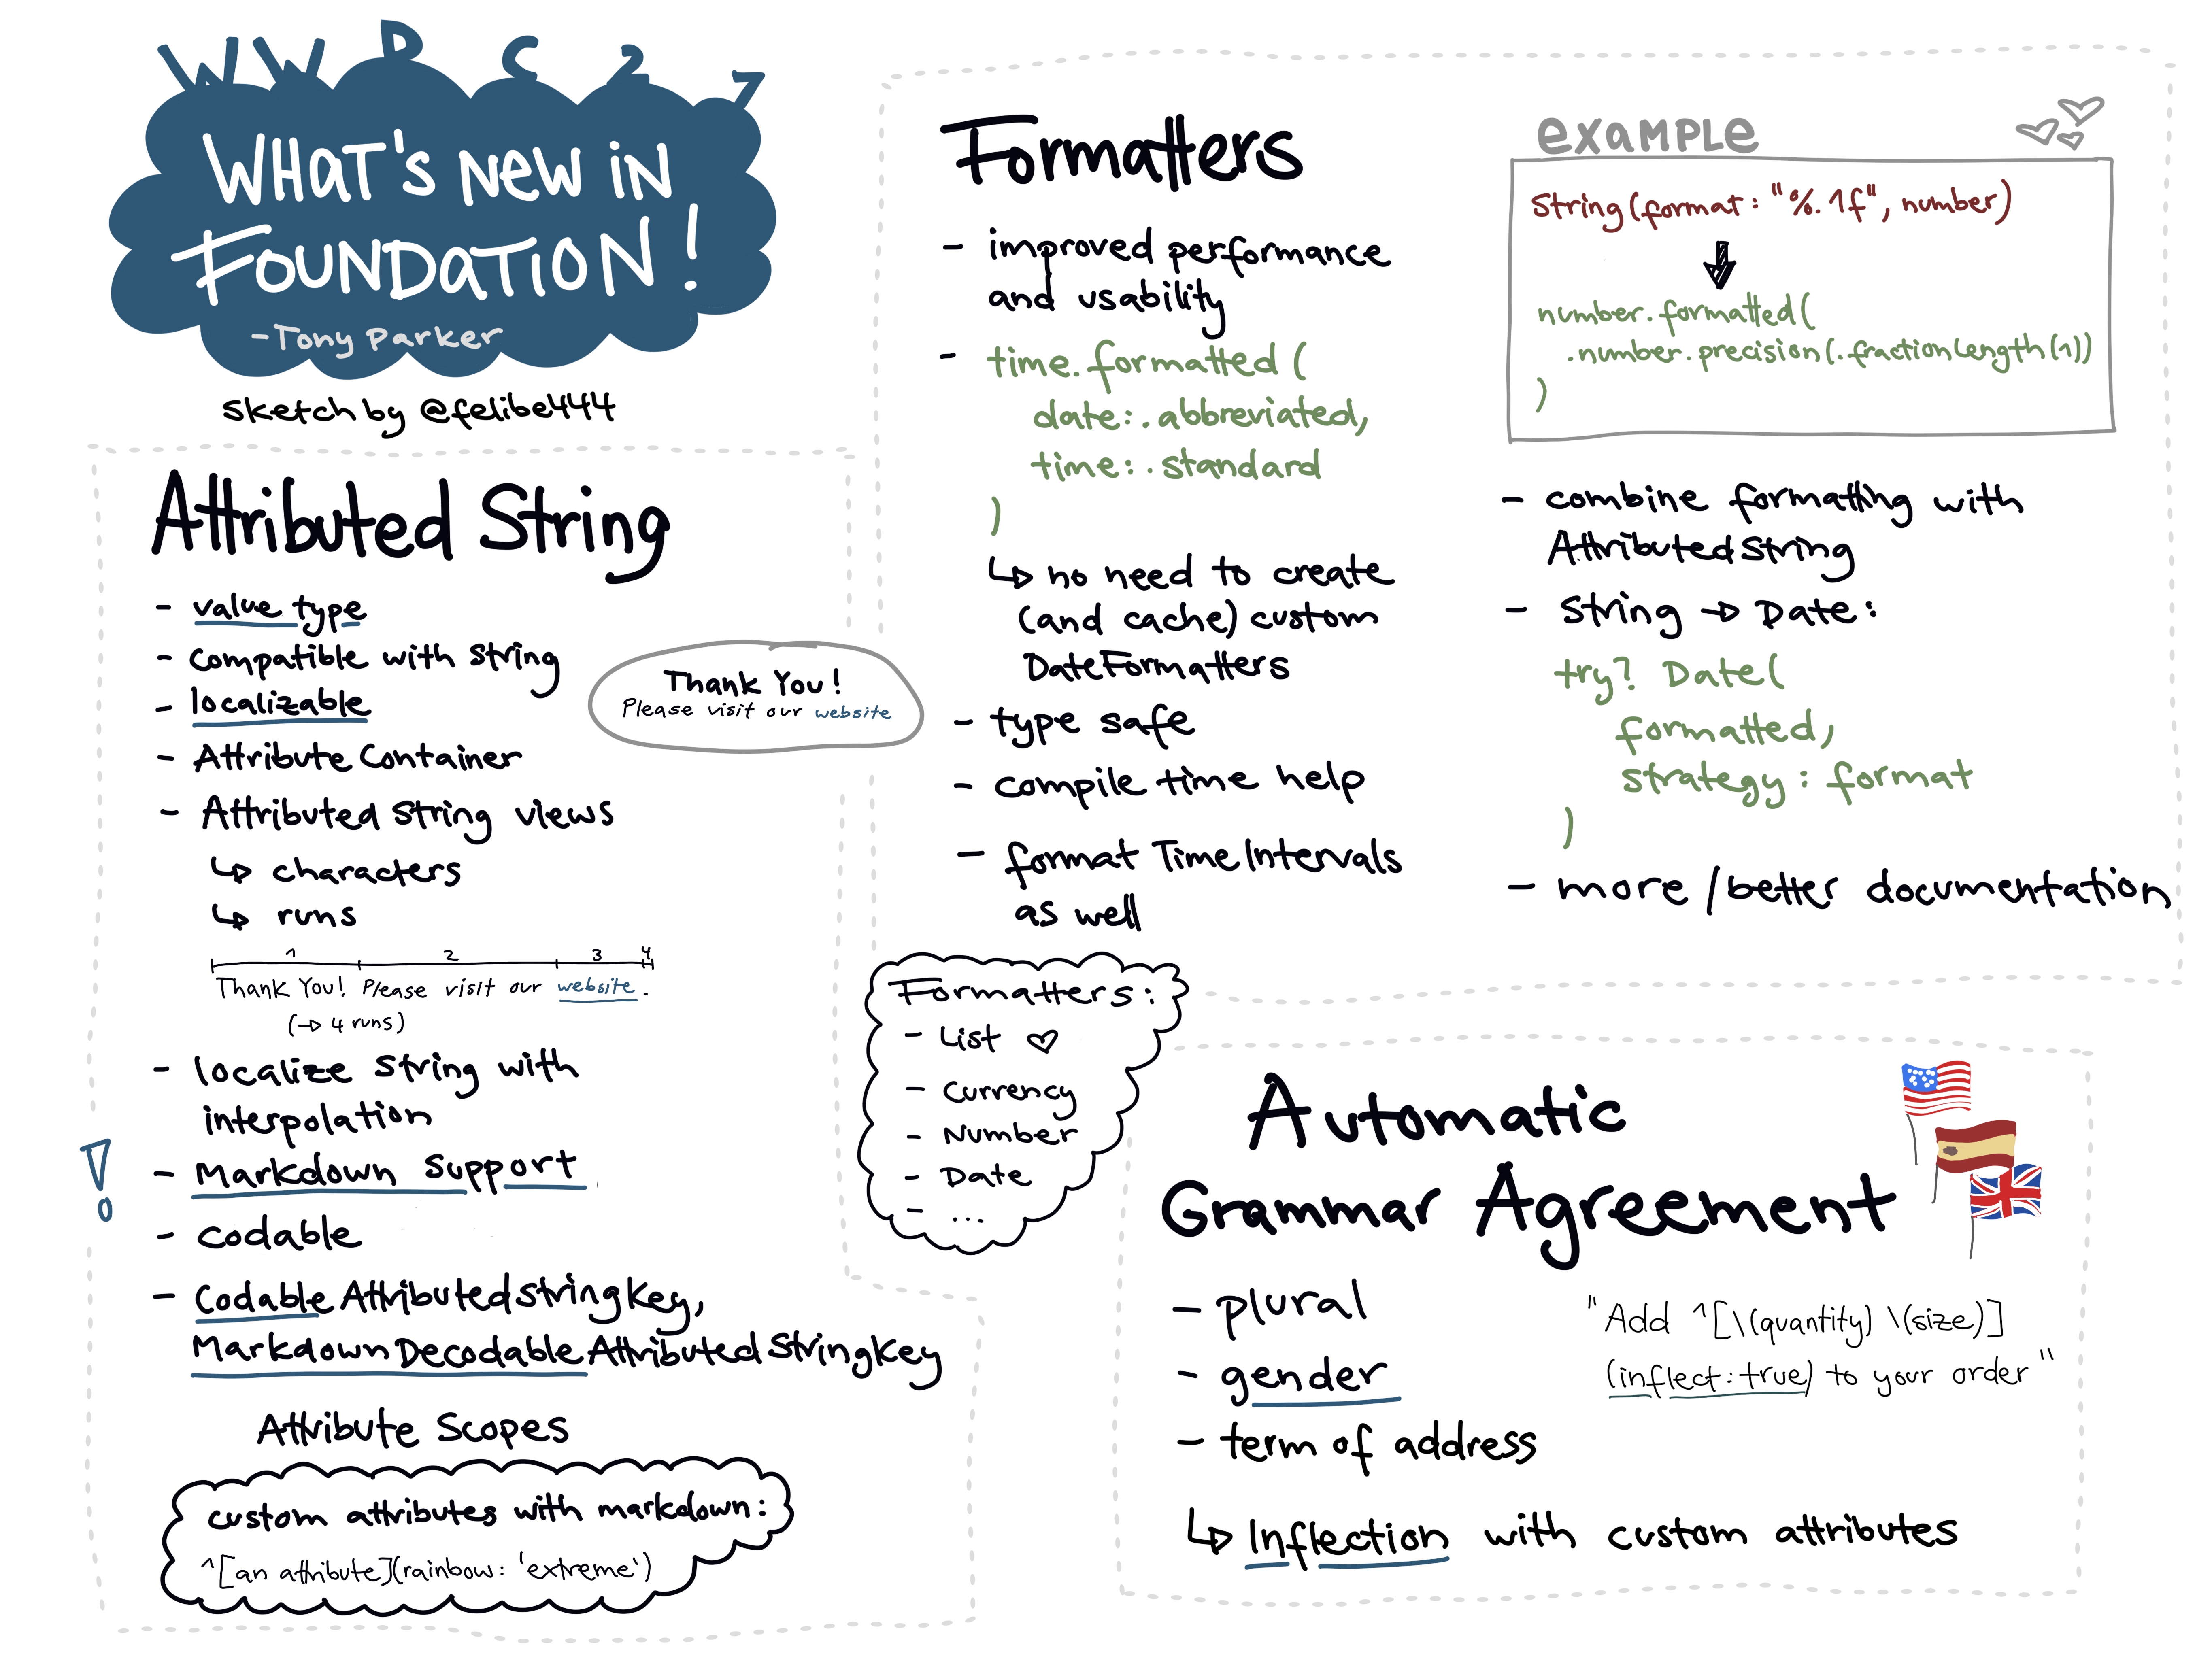 WWDC21
WHAT'S NEW IN
FOUNDATION!
-Tony Parker
sketch by @felibe444
Attributed String
- value type
- compatible with String
- localizable
- Attribute Container
- Attributed String views
↳ characters
↳ runs
1 2 3 4
Thank You! Please visit our website.
(→ 4 runs)
- localize String with
interpolation
! - Markdown Support
- codable
- Codable AttributedStringKey,
MarkdownDecodable AttributedStringKey
Attribute Scopes
custom attributes with markdown:
^[an attribute](rainbow: 'extreme')
Thank You!
Please visit our website
Formatters
- improved performance
and usability
- time.formatted(
date: .abbreviated,
time: .standard
)
↳ no need to create
(and cache) custom
DateFormatters
- type safe
- compile time help
- format TimeIntervals
as well
Formatters:
- List ♡
- Currency
- Number
- Date
- ...
example
String(format: "%.1f", number)
number.formatted(
.number.precision(.fractionLength(1))
)
- combine formatting with
AttributedString
- String → Date:
try? Date(
formatted,
strategy: format
)
- more/better documentation
Automatic
Grammar Agreement
- plural
- gender
- term of address
↳ Inflection with custom attributes
"Add ^[\(quantity) \(size)]
(inflect:true) to your order"